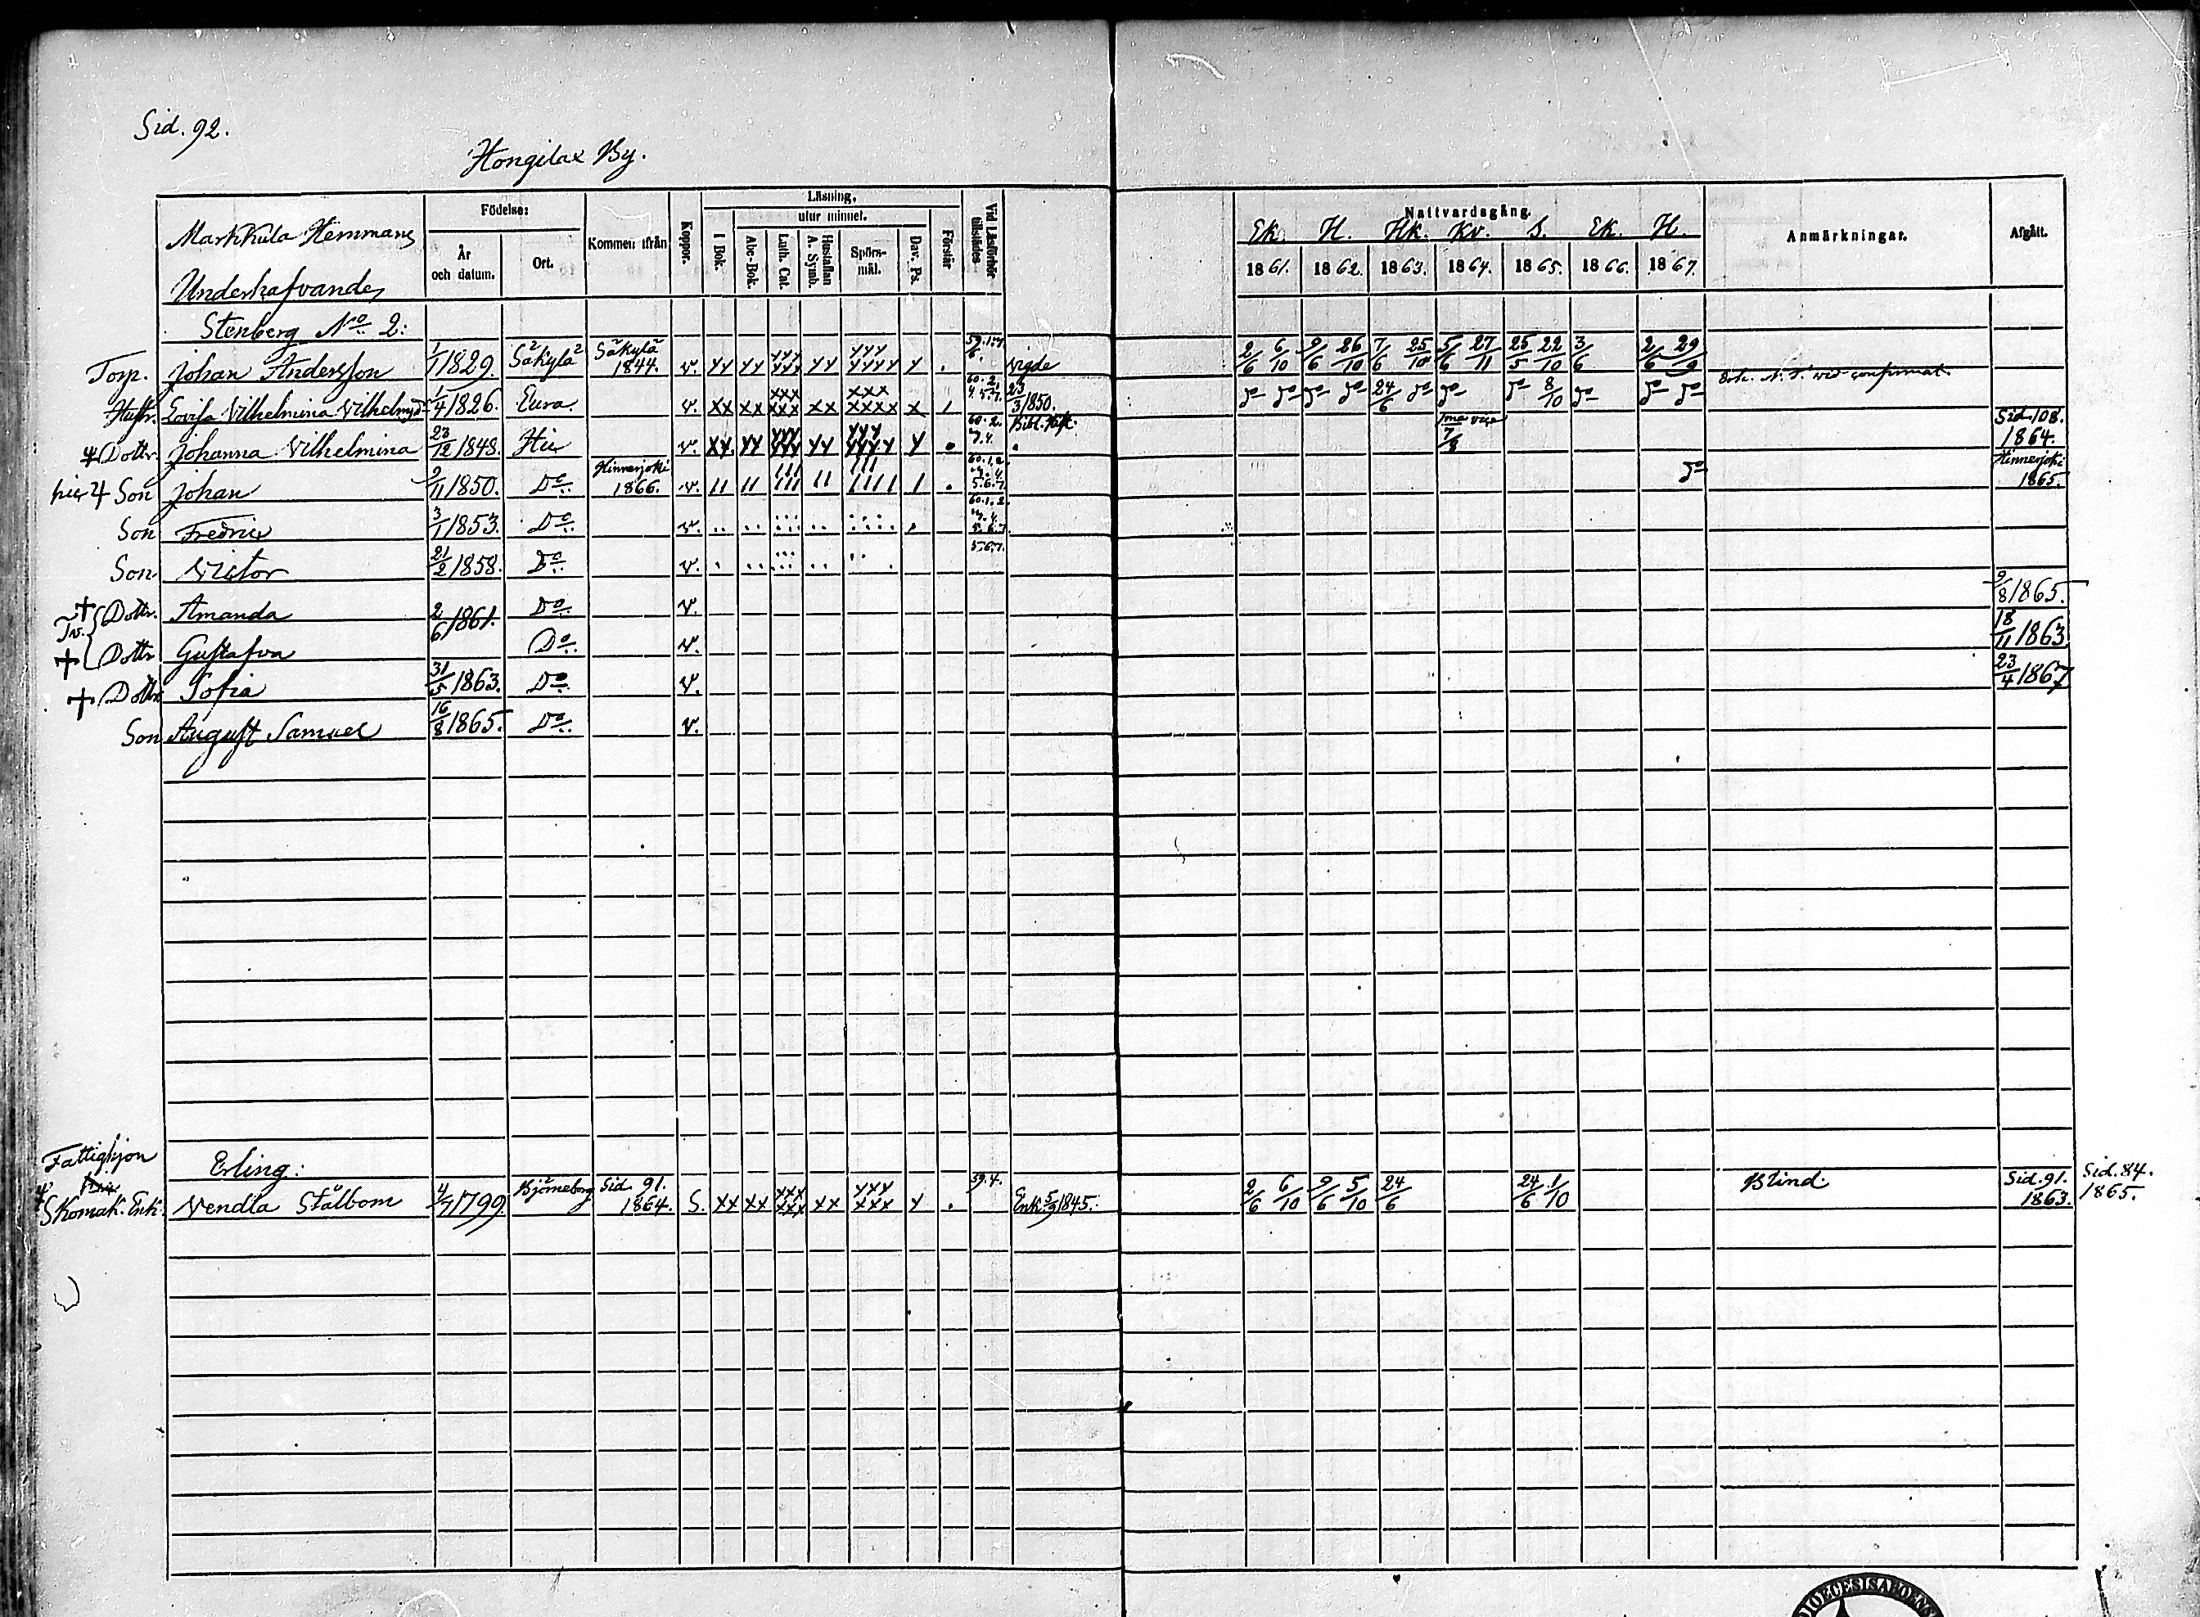 Sid. 92.
Hongilax By.
Markkula Hemmans
Underhafvande,
Födelse:
År och datum.
Ort.
Kommen ifrån
Koppor.
Läsning,
I Bok.
utur minnet.
Abc-Bok.
Luth. Cat.
Hustaflan A. Symb.
Spörs-mål.
Dav. Ps.
Förstår
Vid Läsförhör tillstädes
Nattvardsgång.
Ek. H. Hk. Kv. S. Ek. H.
1861. 1862. 1863. 1864. 1865. 1866. 1867.
Anmärkningar.
Afgått.
Stenberg No 2:
Torp. Johan Andersson 1/1 1829. Säkylä Säkylä 1844. v. vigde 2/6 6/10 9/6 26/10 7/6 25/10 5/6 27/11 25/5 22/10 3/6 2/6 29/9
Hustr. Lovisa Vilhelmina Vilhelmsd. 1/4 1826. Eura. v. xx xx xxx xxx xx xxx xxxx x 23/3 1850. 24/6 8/10
Dottr. Johanna Vilhelmina 23/12 1848. Hic v. Bibl. Hist. 7/8 Sid. 108. 1864.
hic Son Johan 9/11 1850. Do Hinnerjoki 1866. v. Do Hinnerjoki 1865.
Son Fredric 3/1 1853. Do v.
Son Victor 21/2 1858. Do v. 5.6.7.
Tv. † Dottr. Amanda 2/6 1861. Do v. 9/8 1865.
† Dottr. Gustafva Do v. 18/11 1863
† Dottr. Sofia 31/5 1863. Do v. 23/4 1867
Son August Samuel 16/8 1865. Do v.
Fattighjon
Erling:
Skomak. Enk. Vendla Stålbom 4/7 1799 Björneborg Sid. 91. 1864. S. xx xx xxx xxx xx x 59.4. Enk. 5/9 1845. 2/6 6/10 9/6 5/10 24/6 24/6 1/10 Blind. Sid. 91. 1863. Sid. 84. 1865.
DIOECESIS ABOENS